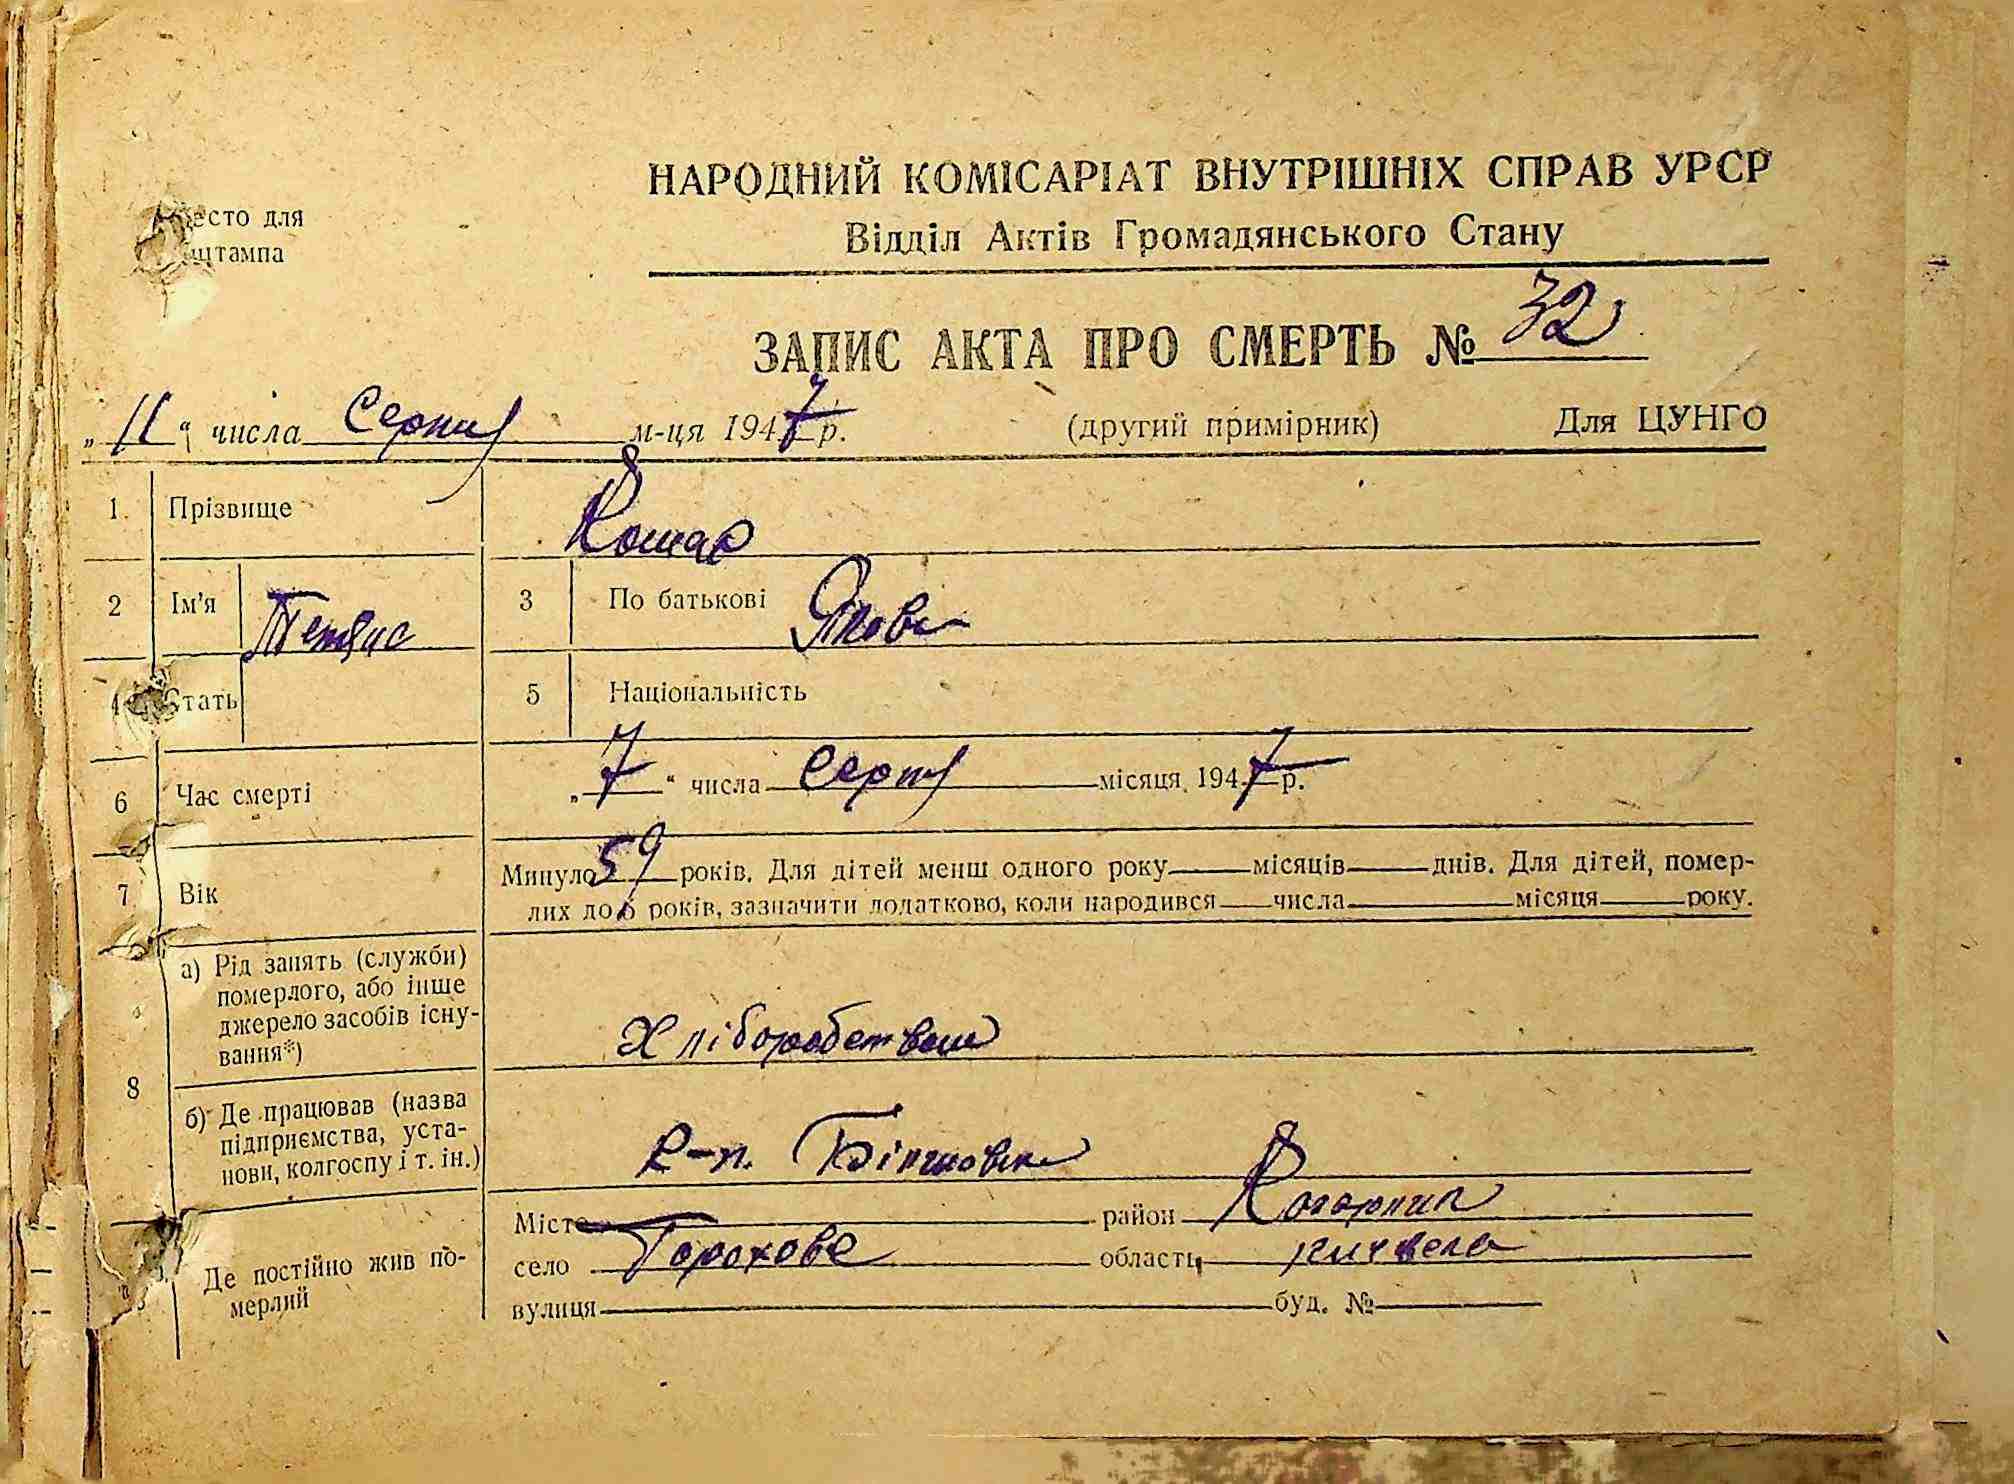 НАРОДНИЙ КОМІСАРІАТ ВНУТРІШНІХ СПРАВ УРСР
Место для
штампа
Відділ Актів Громадянського Стану
ЗАПИС АКТА ПРО СМЕРТЬ № 32
„11“ числа Серпня м-ця 1947 р. (другий примірник) Для ЦУНГО
1. Прізвище
2 Ім'я Тетяна 3 По батькові
4 Стать 5 Національність
6 Час смерті „7“ числа Серпня місяця 1947 р.
7 Вік Минуло 59 років. Для дітей менш одного року місяців днів. Для дітей, помер-
лих до 6 років, зазначити додатково, коли народився числа місяця року.
8 а) Рід занять (служби)
померлого, або інше
джерело засобів існу-
вання*)
Хліборобством
б) Де працював (назва
підприємства, уста-
нови, колгоспу і т. ін.)
Де постійно жив по-
мерлий
Місто район
село Горохове область
вулиця буд. №